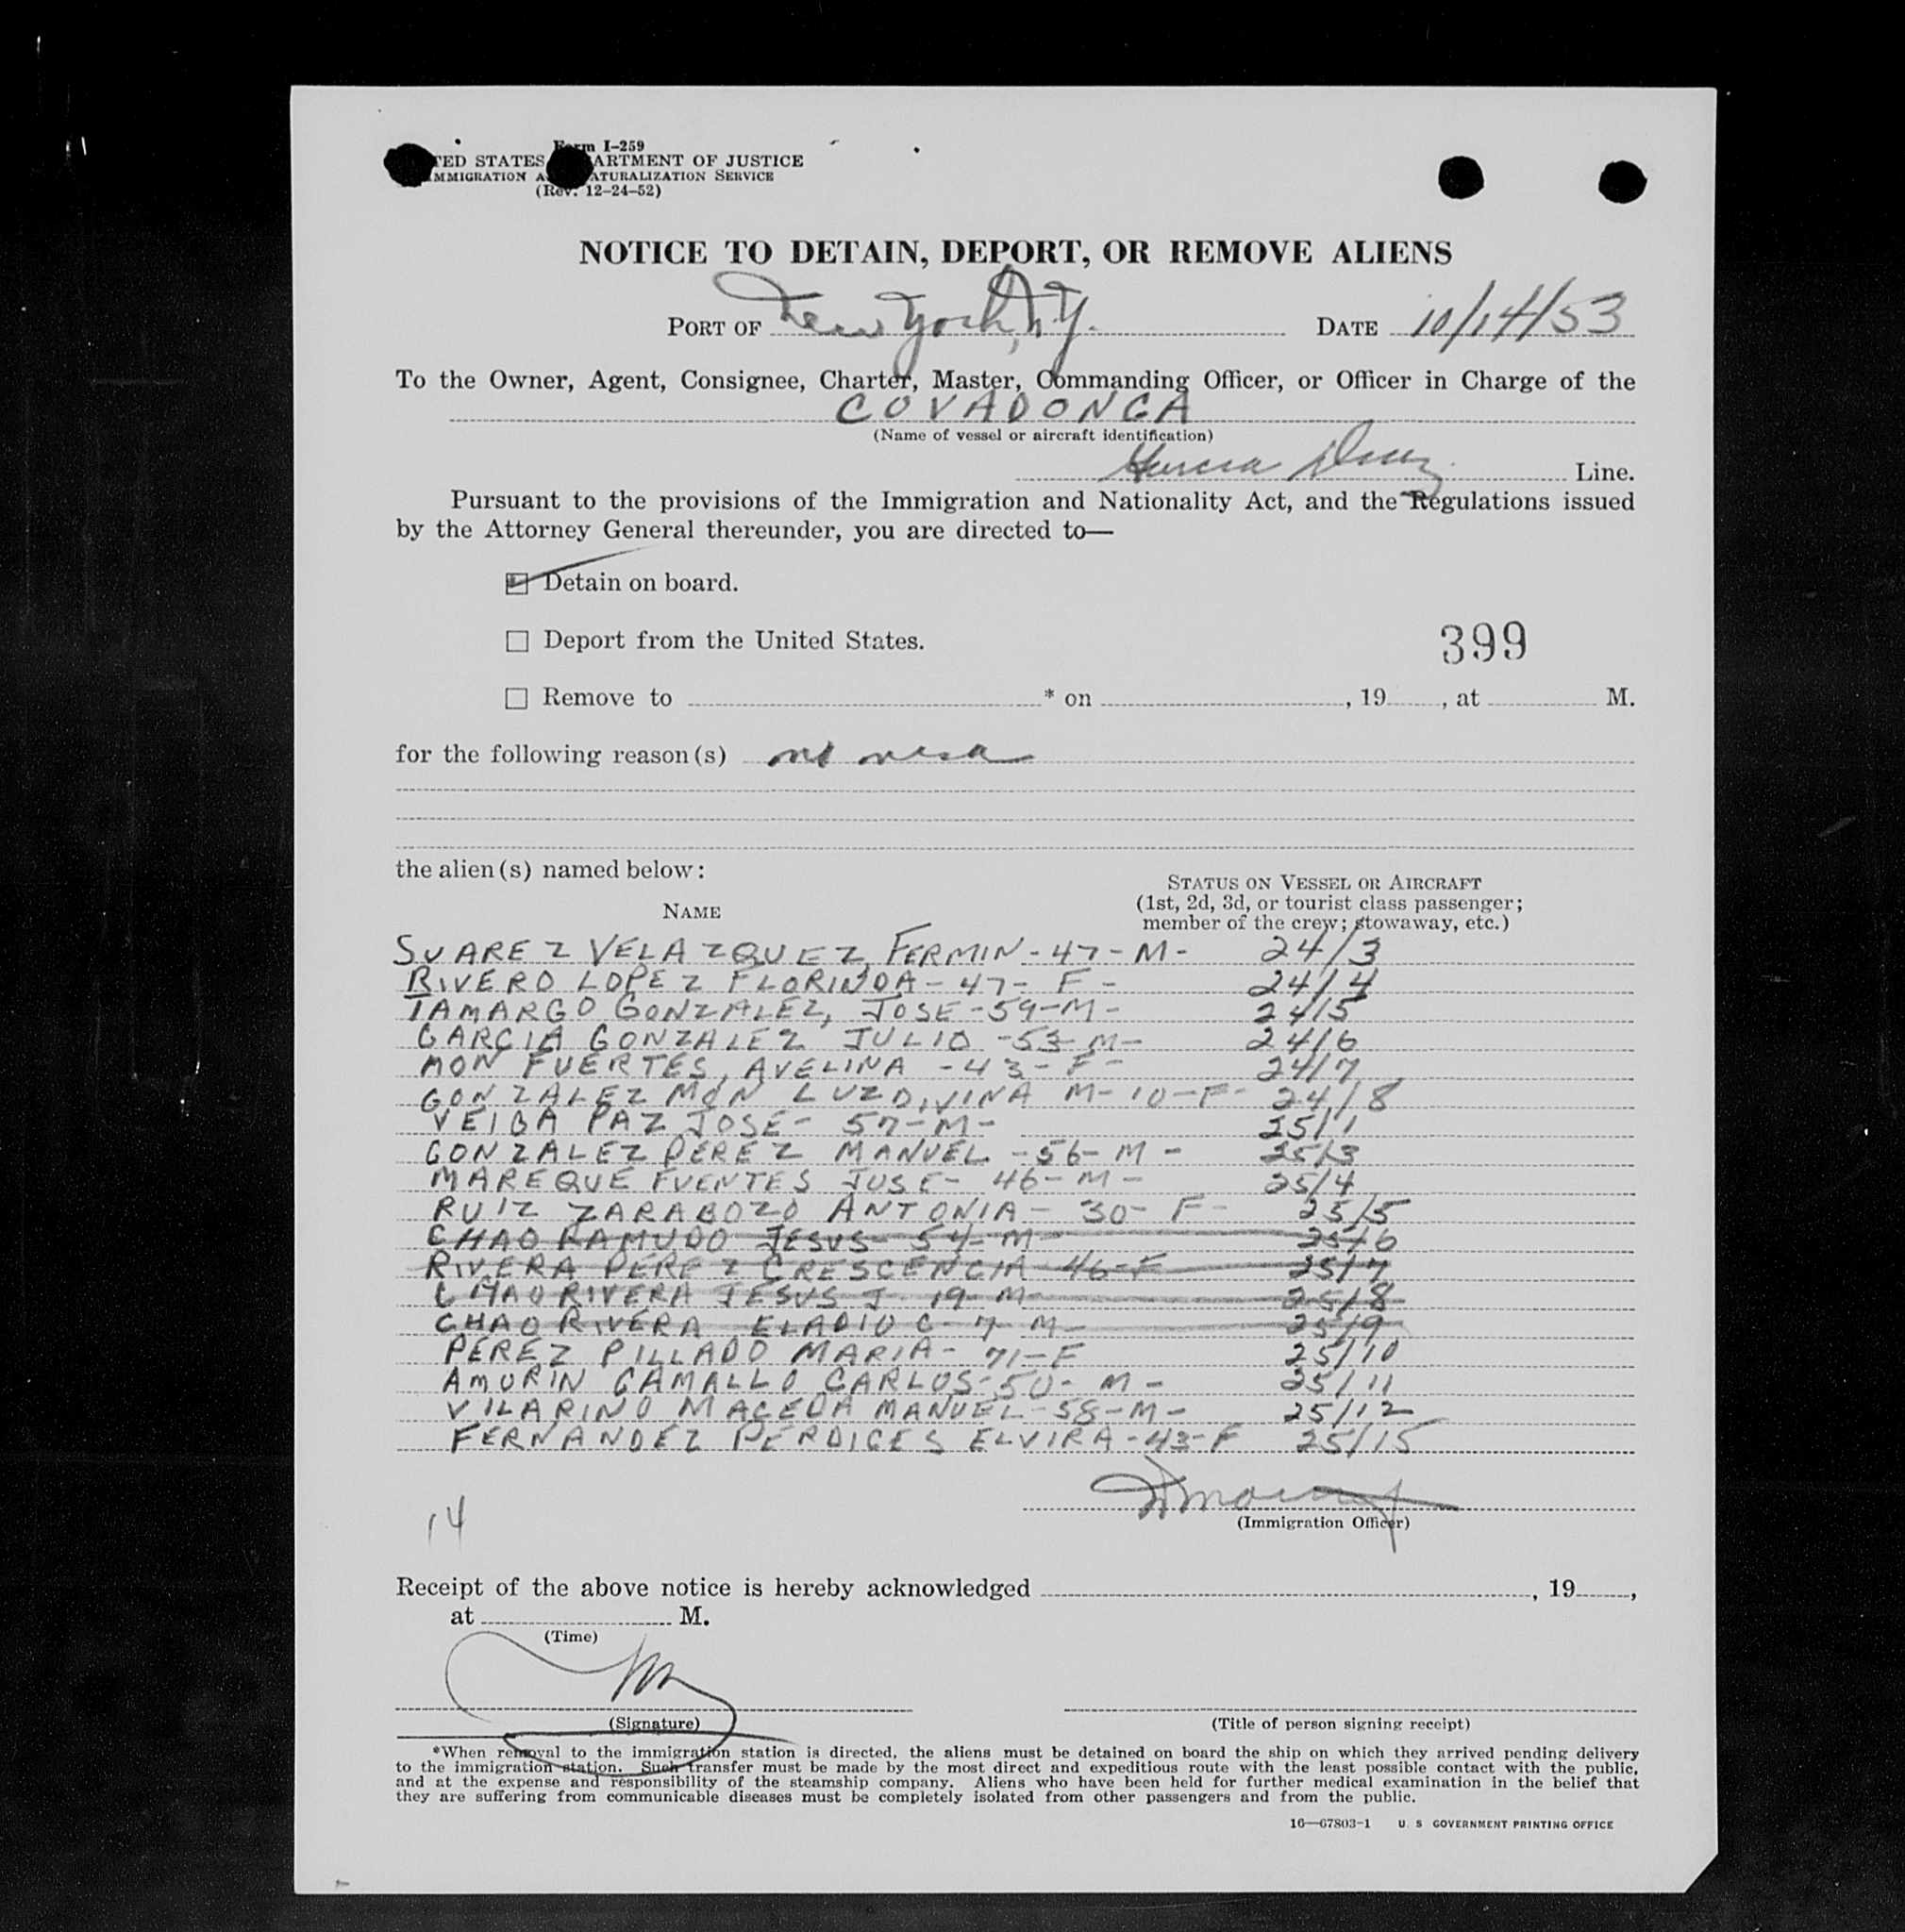 Form I-259
TED STATES ARTMENT OF JUSTICE
MMIGRATION A ATURALIZATION SERVICE
(Rev. 12-24-52)
NOTICE TO DETAIN, DEPORT, OR REMOVE ALIENS
PORT OF New York, N.Y. DATE 10/14/53
To the Owner, Agent, Consignee, Charter, Master, Commanding Officer, or Officer in Charge of the
COVADONGA
(Name of vessel or aircraft identification)
Garcia Diaz Line.
Pursuant to the provisions of the Immigration and Nationality Act, and the Regulations issued
by the Attorney General thereunder, you are directed to—
Detain on board.
Deport from the United States.
399
Remove to * on , 19 , at M.
for the following reason(s) no visa
the alien(s) named below:
STATUS ON VESSEL OR AIRCRAFT
NAME
(1st, 2d, 3d, or tourist class passenger;
member of the crew; stowaway, etc.)
SUAREZ VELAZQUEZ, FERMIN - 47 - M - 24/3
RIVERO LOPEZ FLORINDA - 47 - F - 24/4
TAMARGO GONZALEZ, JOSE - 59 - M - 24/5
GARCIA GONZALEZ JULIO - 53 - M - 24/6
MON FUERTES, AVELINA - 43 - F - 24/7
GONZALEZ MON LUZDIVINA M - 10 - F - 24/8
VEIGA PAZ JOSE - 57 - M - 25/1
GONZALEZ PEREZ MANUEL - 56 - M - 25/3
MAREQUE FUENTES JOSE - 46 - M - 25/4
RUIZ ZARABOZO ANTONIA - 30 - F - 25/5
CHAO RAMUDO JESUS - 54 - M - 25/6
RIVERA PEREZ CRESCENCIA 46 - F 25/7
CHAO RIVERA JESUS J - 19 - M - 25/8
CHAO RIVERA ELADIO C - 7 - M - 25/9
PEREZ PILLADO MARIA - 71 - F 25/10
AMORIN GAMALLO CARLOS - 50 - M - 25/11
VILARINO MACEDA MANUEL - 58 - M - 25/12
FERNANDEZ PERDICES ELVIRA - 43 - F 25/15
(Immigration Officer)
14
Receipt of the above notice is hereby acknowledged , 19 ,
at M.
(Time)
(Signature) (Title of person signing receipt)
*When removal to the immigration station is directed, the aliens must be detained on board the ship on which they arrived pending delivery
to the immigration station. Such transfer must be made by the most direct and expeditious route with the least possible contact with the public,
and at the expense and responsibility of the steamship company. Aliens who have been held for further medical examination in the belief that
they are suffering from communicable diseases must be completely isolated from other passengers and from the public.
16—67803-1 U. S. GOVERNMENT PRINTING OFFICE